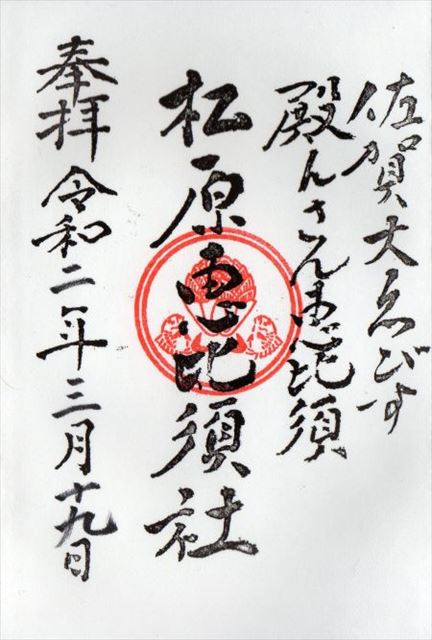 佐賀大ゑびす
殿んさん恵比須
松原恵比須社
奉拝 令和二年三月十九日